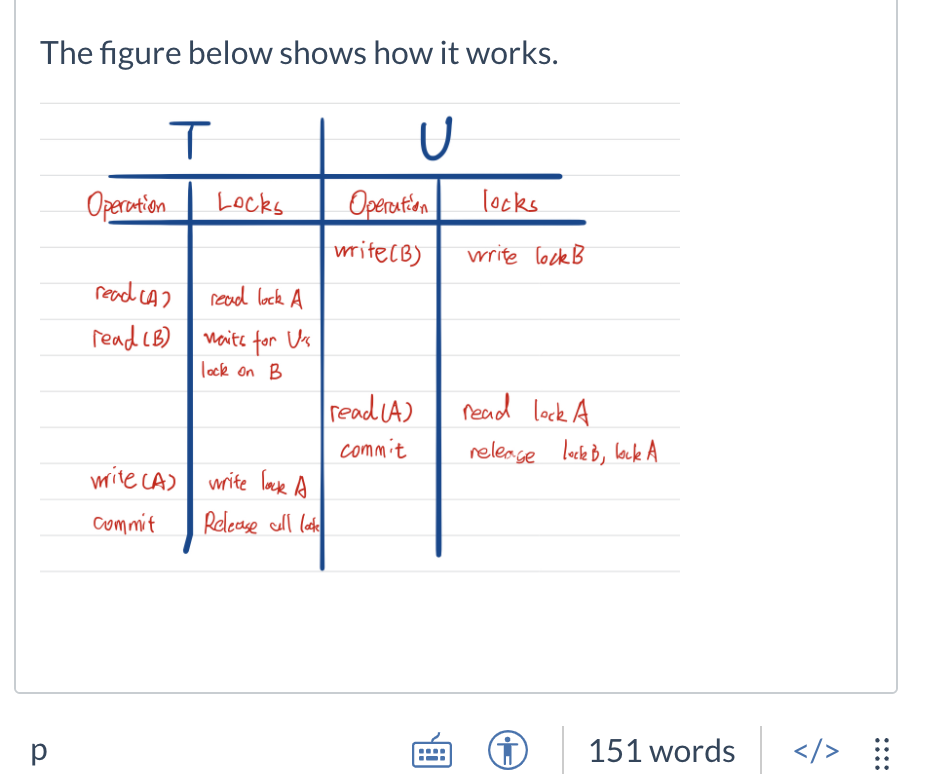 The figure below shows how it works.
T U
Operation Locks Operation locks
write(B) write lock B
read(A) read lock A
read(B) waits for U's
lock on B
read(A) read lock A
commit release lock B, lock A
write(A) write lock A
commit Release all lock
p 151 words </>